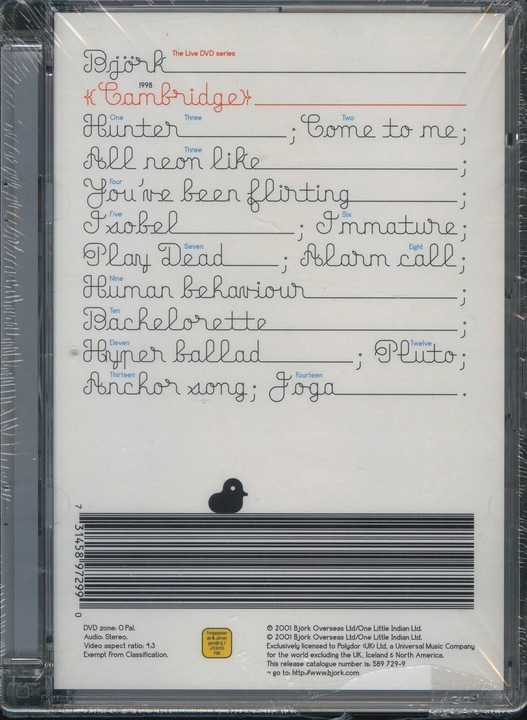 Björk The Live DVD series
1998
«Cambridge»
One Three Two
Hunter ; Come to me;
Three
All neon like ;
Four
You've been flirting ;
Five Six
Isobel ; Immature;
Seven Eight
Play Dead ; Alarm call;
Nine
Human behaviour ;
Ten
Bachelorette ;
Eleven Twelve
Hyper ballad ; Pluto;
Thirteen Fourteen
Anchor song; Joga .
7 31458 97299 0
DVD zone: 0 Pal.
Audio: Stereo.
Video aspect ratio: 4:3
Exempt from Classification.
Freigegeben
℗ 2001 Björk Overseas Ltd/One Little Indian Ltd.
© 2001 Björk Overseas Ltd/One Little Indian Ltd.
Exclusively licensed to Polydor (UK) Ltd, a Universal Music Company
for the world excluding the UK, Iceland & North America.
This release catalogue number is: 589 729-9
→ go to: http://www.bjork.com